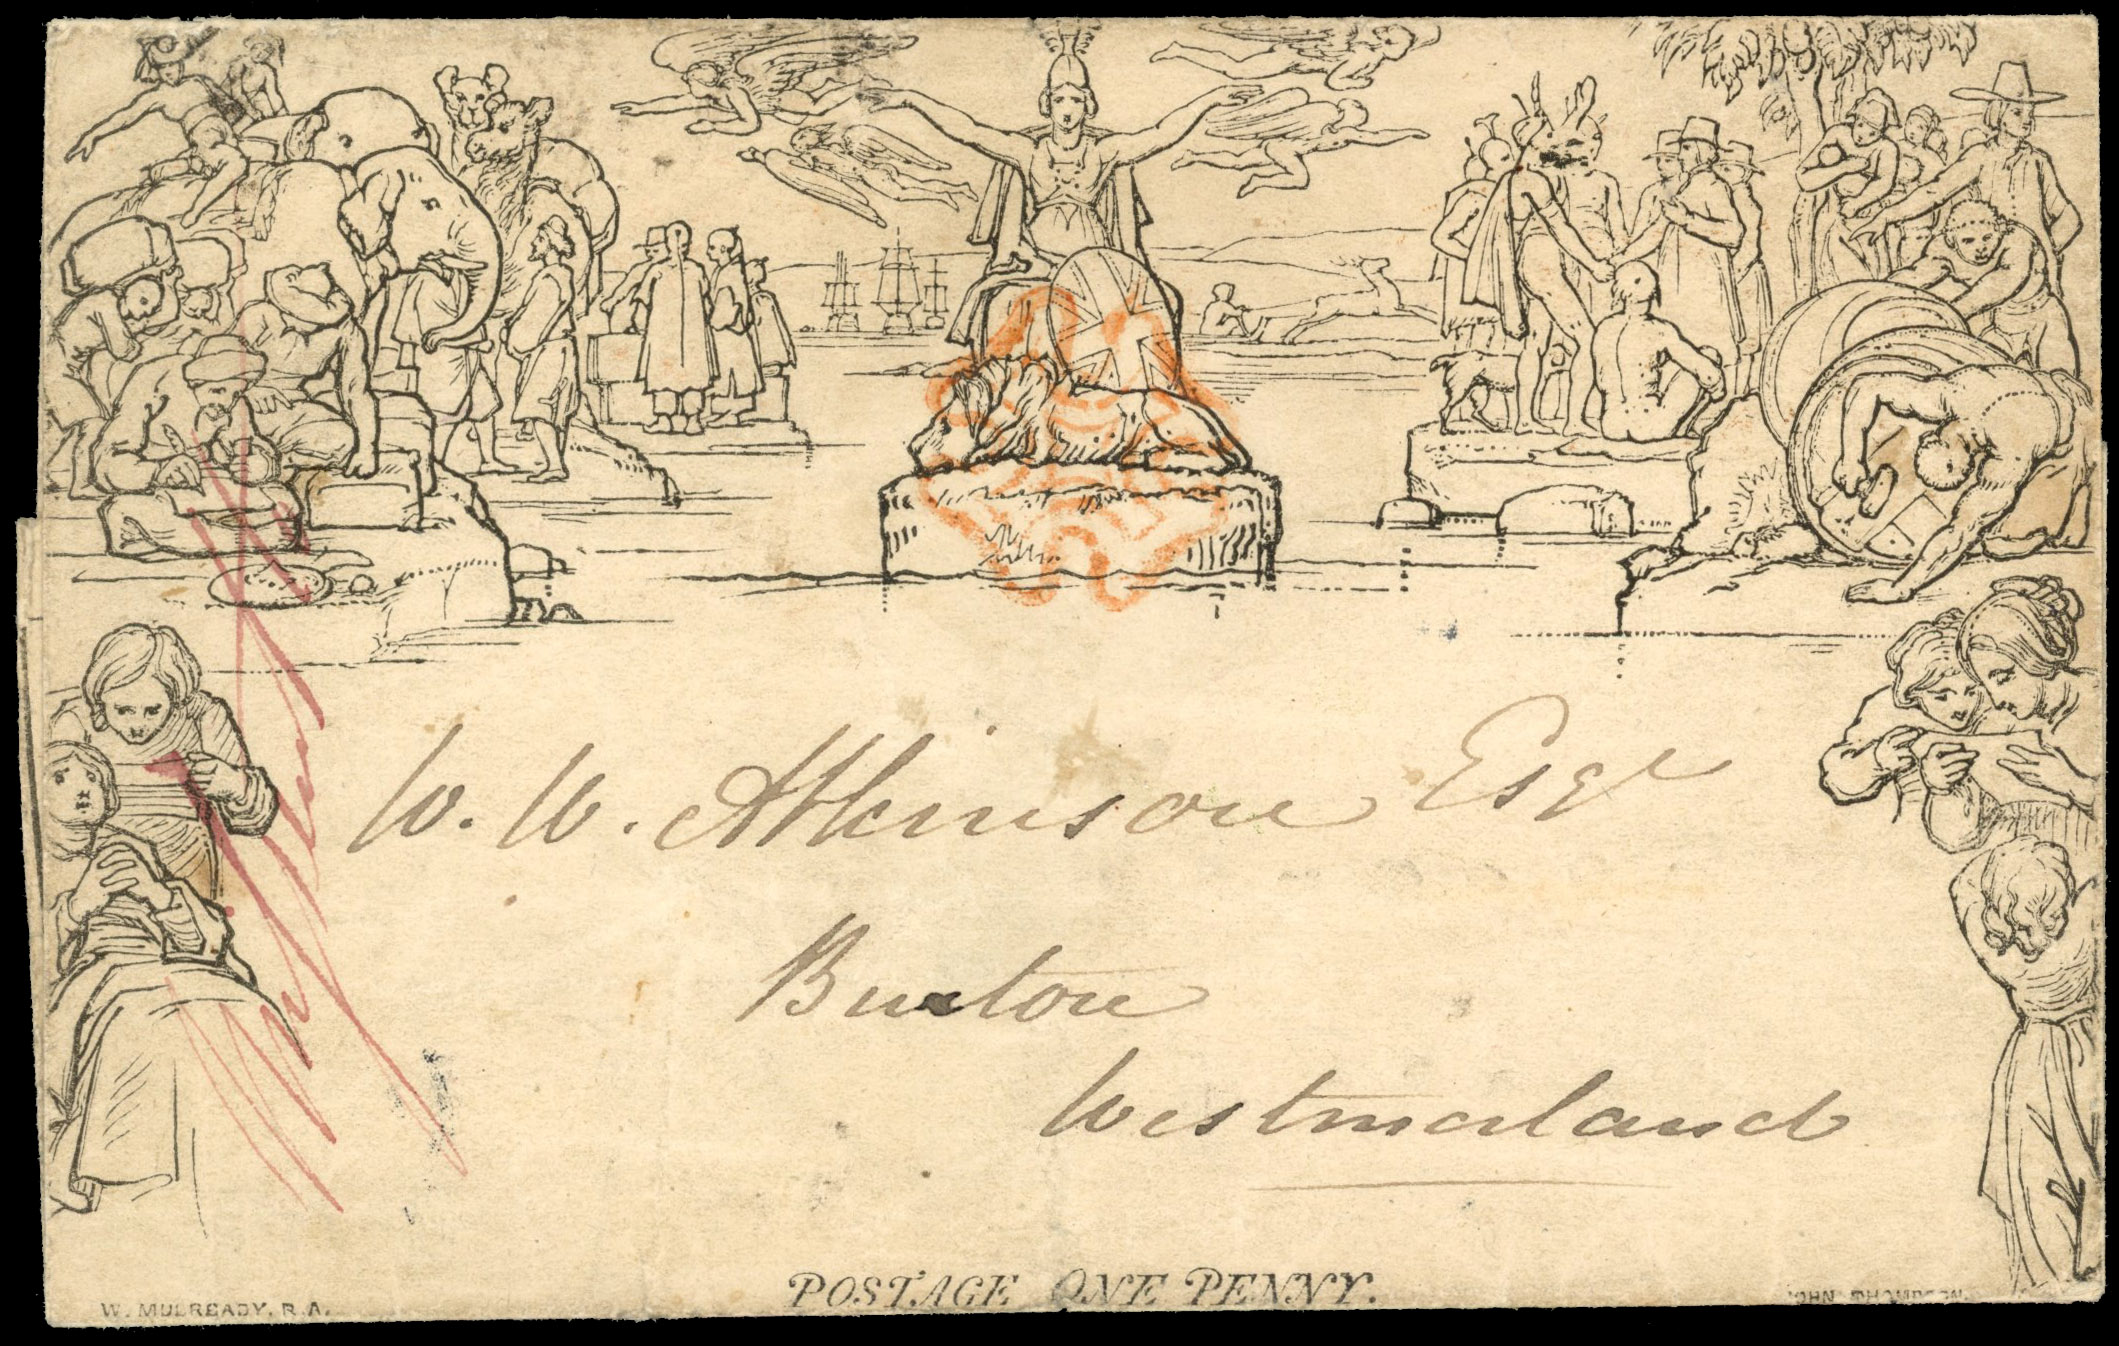 W. W. Atkinson Esqr
Burton
Westmorland
POSTAGE ONE PENNY.
W. MULREADY, R.A.
JOHN THOMPSON.